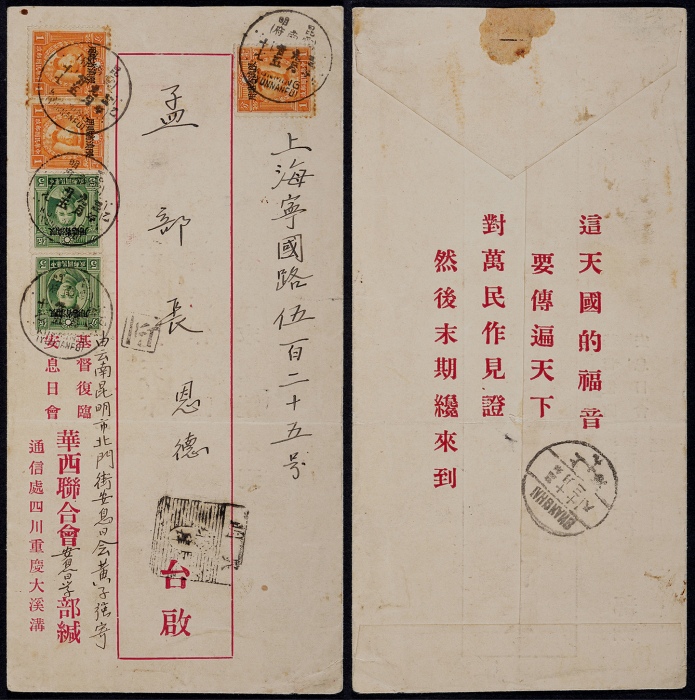 上海寧國路伍百二十五号
孟部長恩德
台啟
由云南昆明市北門街安息日会黃子強寄
基督復臨
安息日會
華西聯合會安息日学部緘
通信處四川重慶大溪溝
KUNMING
(YUNNANFU)
這天國的福音
要傳遍天下
對萬民作見證
然後末期纔來到
SHANGHAI